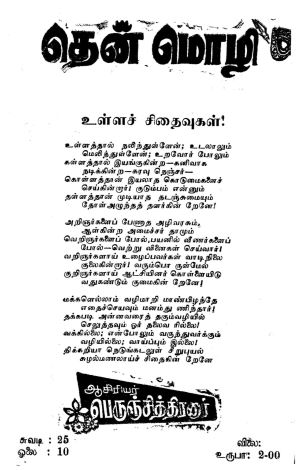 தென் மொழி
உள்ளச் சிதைவுகள்!
உள்ளத்தால் நலிந்துள்ளேன்; உடலாலும்
மெலிந்துள்ளேன்; உறவோர் போலும்
கள்ளத்தால் இயங்குகின்ற—கனிவாக
நடிக்கின்ற—கரவு நெஞ்சர்—
கொள்ளத்தான் இயலாத கொடுமைகளைச்
செய்கின்றார்! குடும்பம் என்னும்
தள்ளத்தான் முடியாத தடஞ்சுமையும்
தோள்அழுந்தத் தளர்கின் றேனே!
அறிஞர்களைப் பேணாத அழிவரசும்,
ஆள்கின்ற அமைச்சர் தாமும்
வெறிஞர்களைப் போல், பயனில் வீணர்களைப்
போல்—வெற்று வினைகள் செய்வார்!
வறிஞர்களாய் உழைப்பவர்கள் வாடிநிலை
குலைகின்றார்! வரும்பொ ருள்மேல்
குறிஞர்களாய் ஆட்சியினர் கொள்ளையிடு
வதுகண்டும் குமைகின் றேனே!
மக்களெலாம் வழிமாறி மண்பிழந்தே
எதைச்செயவும் மனம்து ணிந்தார்!
தக்கபடி அன்னவரைத் தகும்வழியில்
செலுத்தவும் ஓர் தலைவ ரில்லை!
வக்கில்லை; என்போலும் வருந்துவர்க்கும்
வழியில்லை; வாய்ப்பும் இல்லை!
திக்கறியா நெடுங்கடலுள் சிறுபுயலுள்
சுழல்மணலாய்ச் சிதைகின் றேனே
ஆசிரியர்
பெருஞ்சித்திரனார்
சுவடி : 25
ஓலை : 10
விலை:
உருபா: 2-00